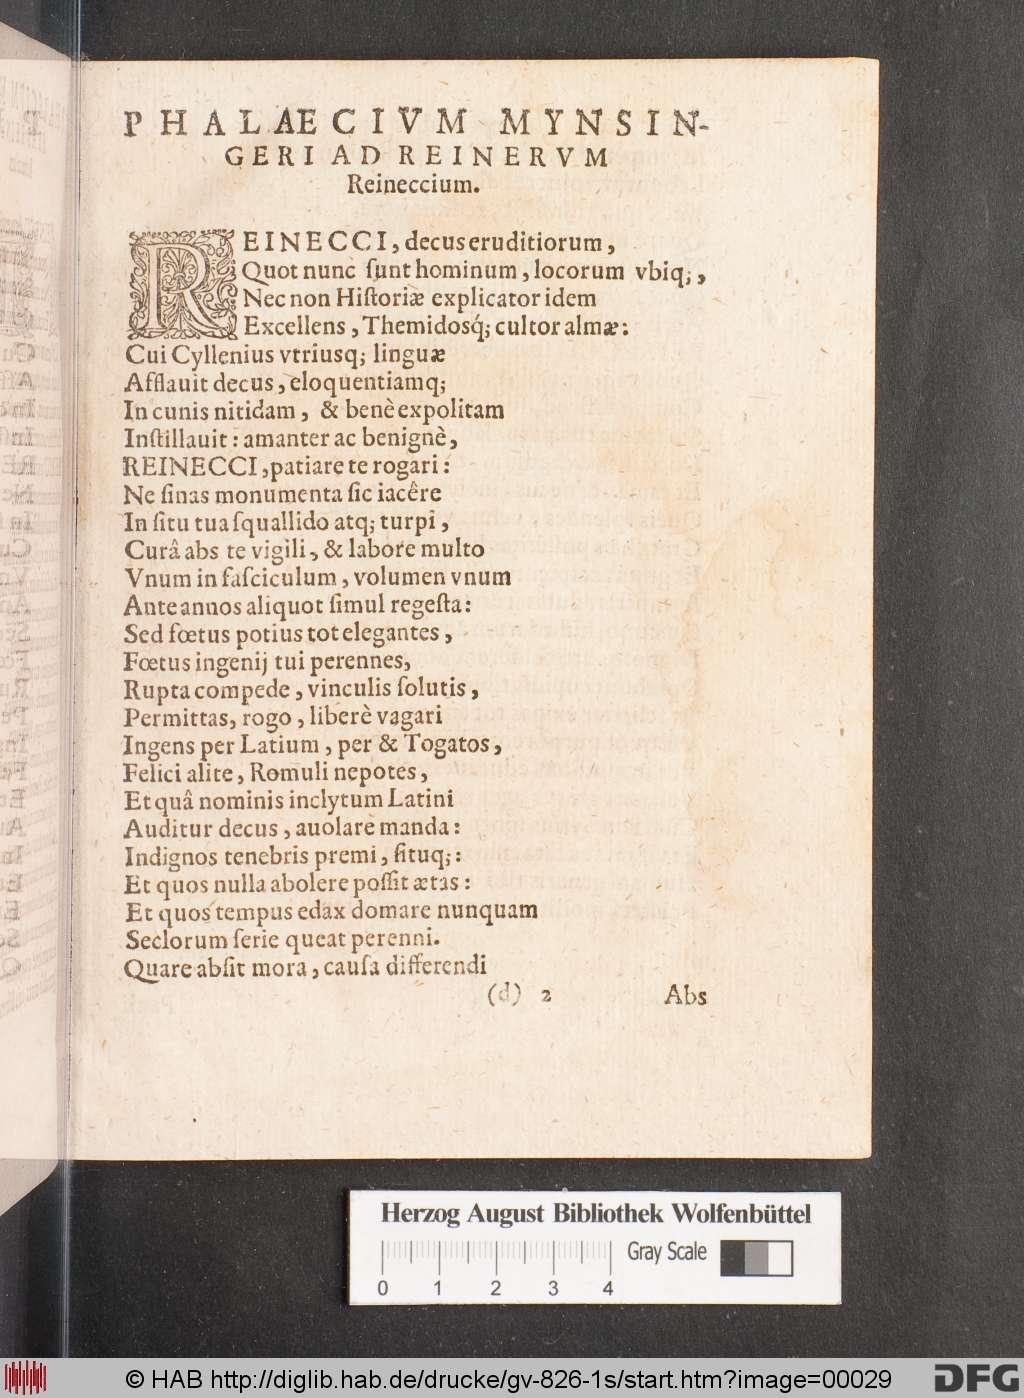 PHALAECIVM MYNSIN-
GERI AD REINERVM
Reineccium.
REINECCI, decus eruditiorum,
Quot nunc ſunt hominum, locorum vbiq;,
Nec non Hiſtoriæ explicator idem
Excellens, Themidosq́; cultor almæ:
Cui Cyllenius vtriusq; linguæ
Afflauit decus, eloquentiamq;
In cunis nitidam, & benè expolitam
Inſtillauit: amanter ac benignè,
REINECCI, patiare te rogari:
Ne ſinas monumenta ſic iacêre
In ſitu tua ſquallido atq; turpi,
Curâ abs te vigili, & labore multo
Vnum in faſciculum, volumen vnum
Ante annos aliquot ſimul regeſta:
Sed fœtus potius tot elegantes,
Fœtus ingenij tui perennes,
Rupta compede, vinculis ſolutis,
Permittas, rogo, liberè vagari
Ingens per Latium, per & Togatos,
Felici alite, Romuli nepotes,
Et quâ nominis inclytum Latini
Auditur decus, auolare manda:
Indignos tenebris premi, ſituq;:
Et quos nulla abolere poſſit ætas:
Et quos tempus edax domare nunquam
Seclorum ſerie queat perenni.
Quare abſit mora, cauſa differendi
(d) 2 Abs
Herzog August Bibliothek Wolfenbüttel
Gray Scale
0 1 2 3 4
© HAB http://diglib.hab.de/drucke/gv-826-1s/start.htm?image=00029
DFG